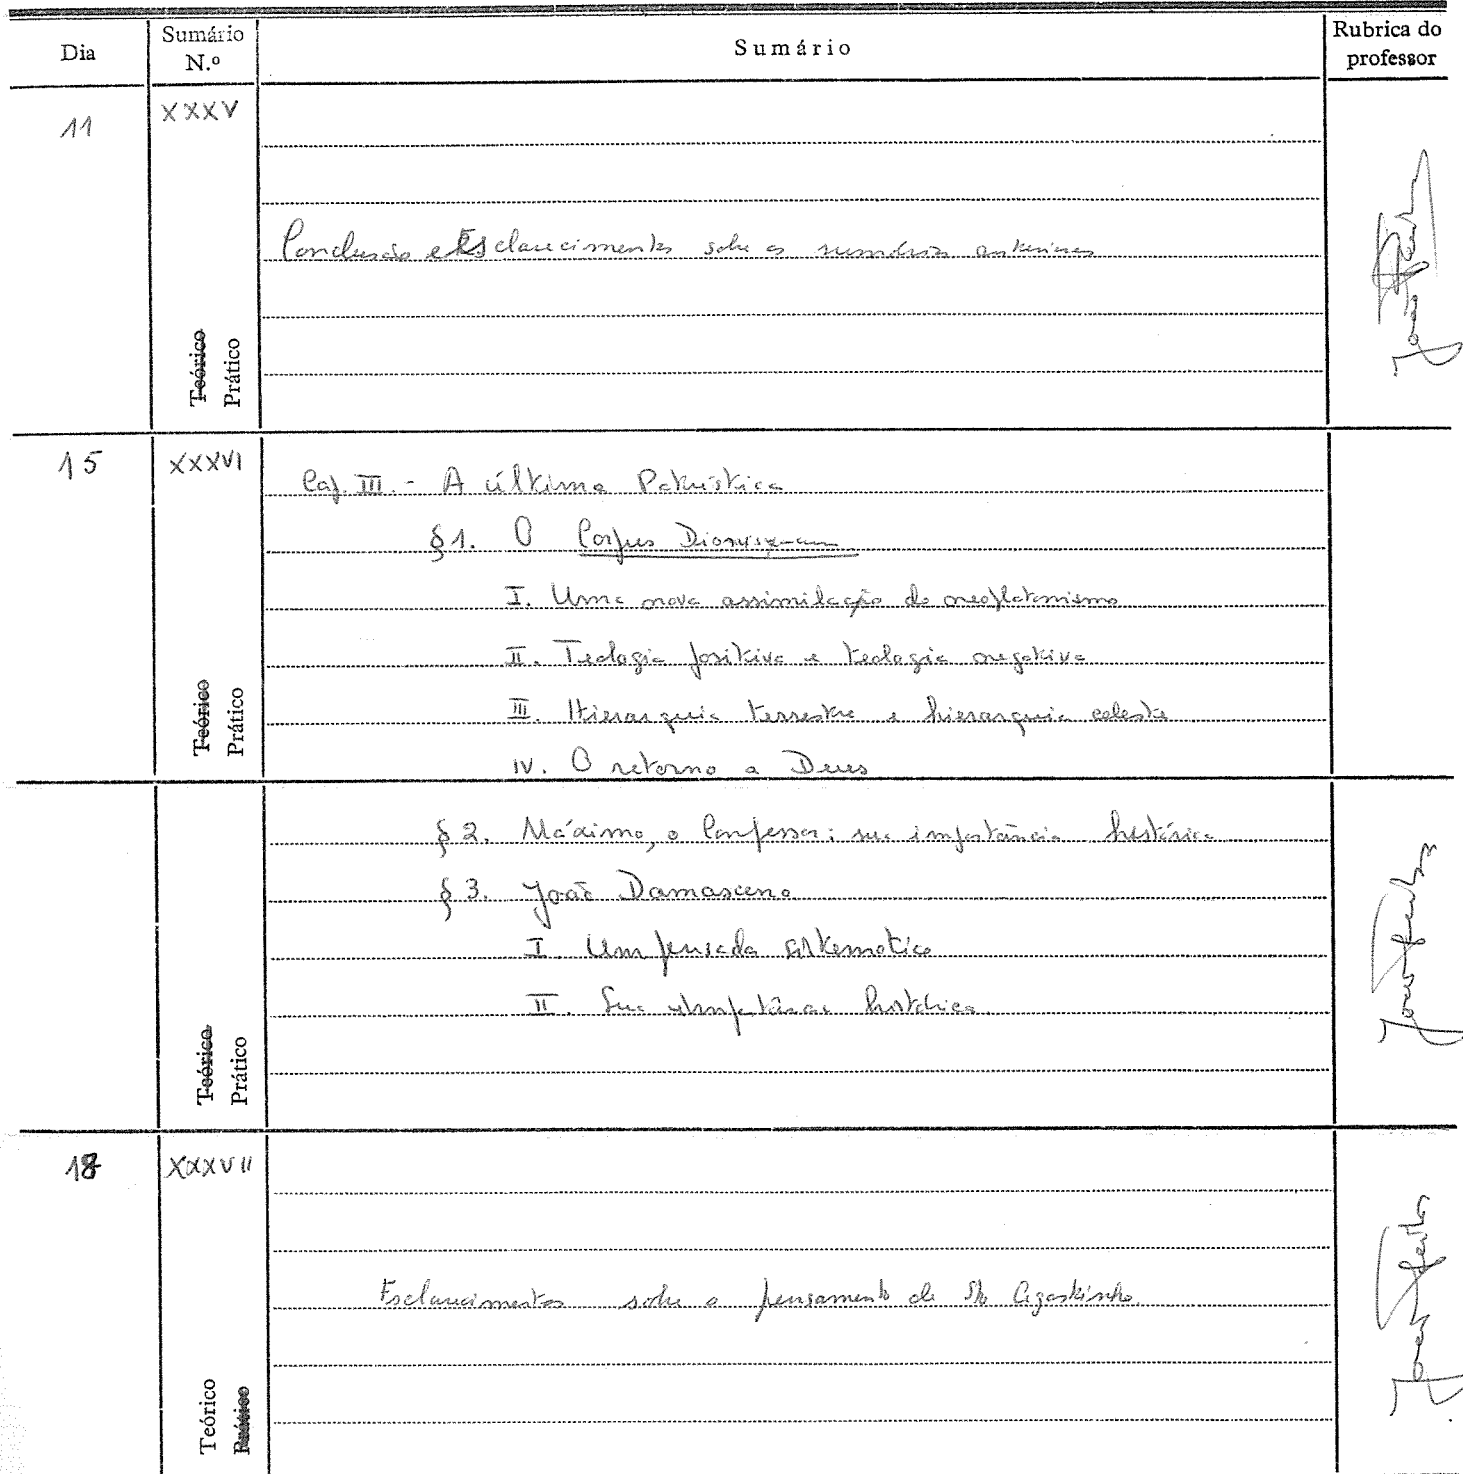 Dia
Sumário N.º
Sumário
Rubrica do professor
11
XXXV
Conclusão e Esclarecimentos sobre os sumários anteriores
Teórico
Prático
15
XXXVI
Cap. III.- A última Patrística
§1. O Corpus Dionysianum
I. Uma nova assimilação do neoplatonismo
II. Teologia positiva e teologia negativa
III. Hierarquia terrestre e hierarquia celeste
IV. O retorno a Deus
Teórico
Prático
§2. Máximo, o Confessor: sua importância histórica
§3. João Damasceno
I. Um pensador sistemático
II. Sua importância histórica
Teórico
Prático
18
XXXVII
Esclarecimentos sobre o pensamento de Sto Agostinho.
Teórico
Prático